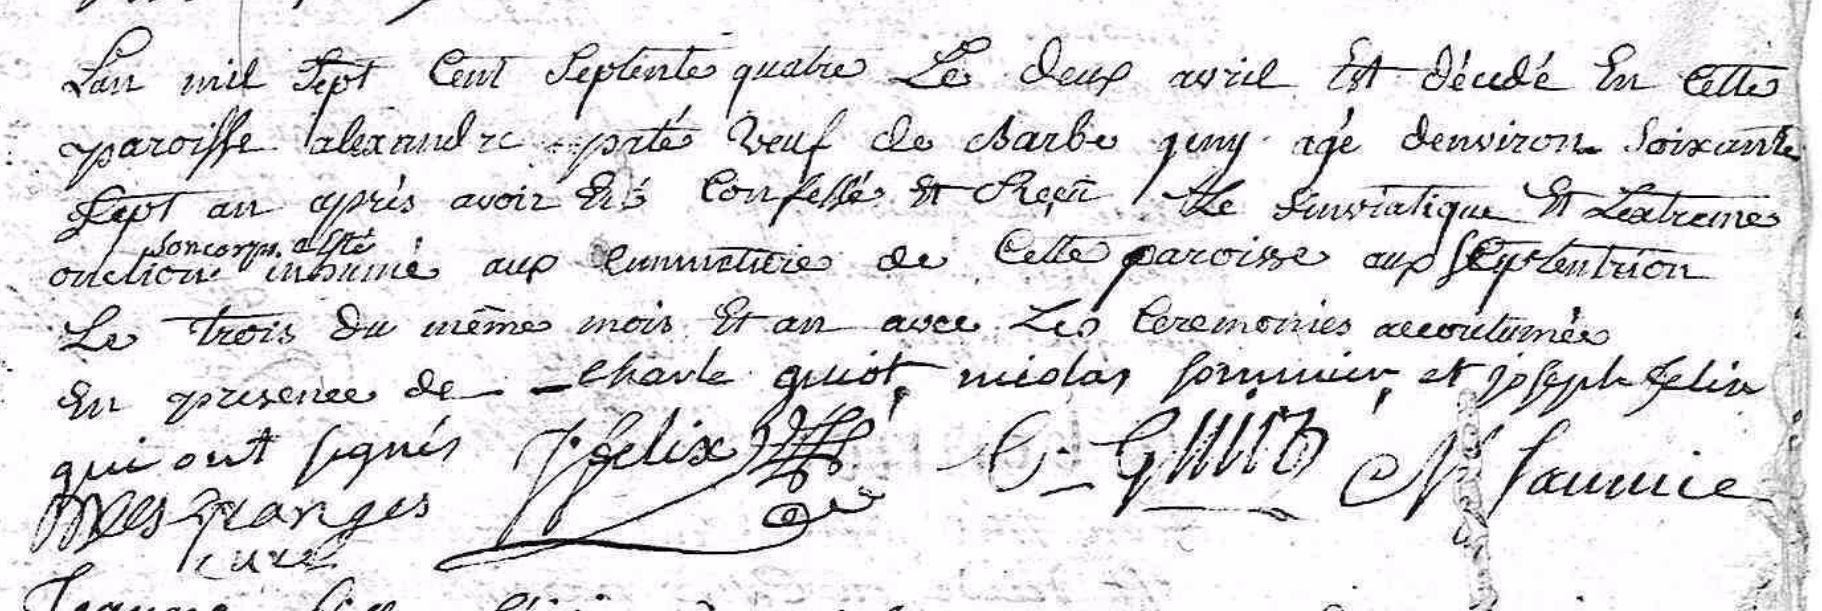 Lan mil sept Cent Septente quatre Le deux avril Est décédé En Cette
paroisse alexandre paté Veuf de Barbe guy agé denviron Soixante
Sept an aprés avoir Eté Confessé Et Reçu Le Suiviatique Et Lextreme
son corps a Eté
onction inhumé aux Cimmetiere de Cette paroisse aux Septentrion
Le trois du même mois Et an avec Les Ceremonies accoutumée
En presence de charle guiot, nicolas sommier, et joseph felix
qui ont signés J. felix C. Guiot N Saumie
Desgranges
curé